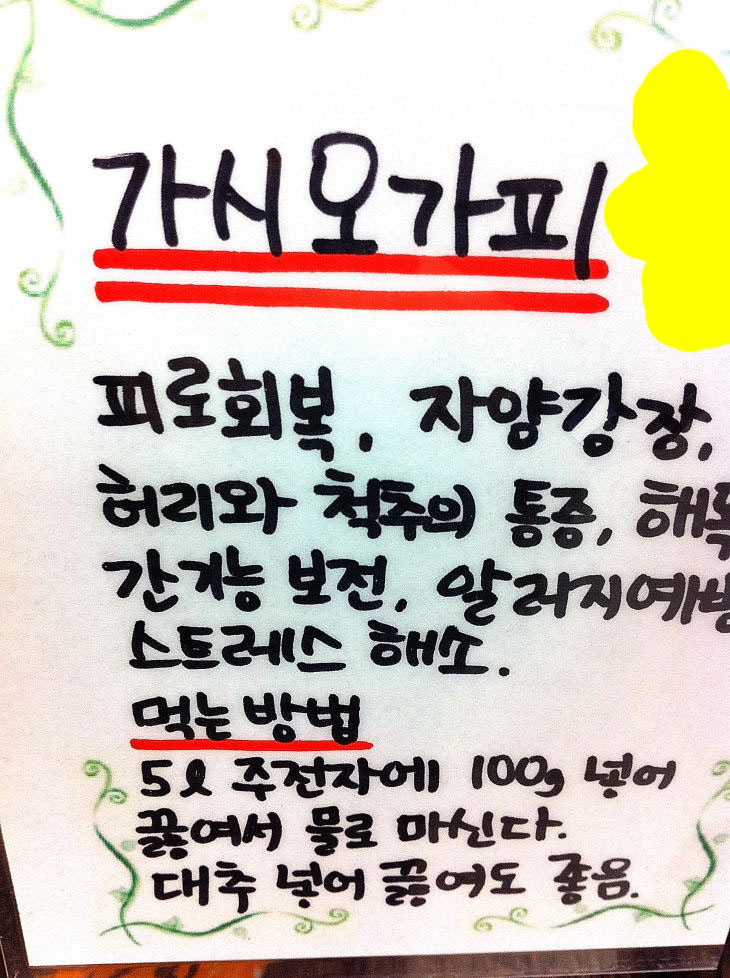 가시오가피
피로회복, 자양강장,
허리와 척추의 통증, 해독
간기능 보전, 알러지예방
스트레스 해소.
먹는방법
5ℓ 주전자에 100g 넣어
끓여서 물로 마신다.
대추 넣어 끓여도 좋음.